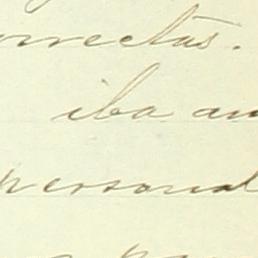 rrectas.
iba an
personal